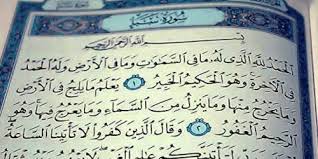 سُورَةُ سَبَإٍ
بِسْمِ ٱللَّهِ ٱلرَّحْمَٰنِ ٱلرَّحِيمِ
ٱلْحَمْدُ لِلَّهِ ٱلَّذِى لَهُۥ مَا فِى ٱلسَّمَٰوَٰتِ وَمَا فِى ٱلْأَرْضِ وَلَهُ ٱلْحَمْدُ
فِى ٱلْأَخِرَةِ وَهُوَ ٱلْحَكِيمُ ٱلْخَبِيرُ ١ يَعْلَمُ مَا يَلِجُ فِى ٱلْأَرْضِ
وَمَا يَخْرُجُ مِنْهَا وَمَا يَنزِلُ مِنَ ٱلسَّمَآءِ وَمَا يَعْرُجُ فِيهَا وَهُوَ
ٱلرَّحِيمُ ٱلْغَفُورُ ٢ وَقَالَ ٱلَّذِينَ كَفَرُوا۟ لَا تَأْتِينَا ٱلسَّاعَةُ
لَتَأْتِيَنَّكُمْ عَٰلِمِ ٱلْغَيْبِ